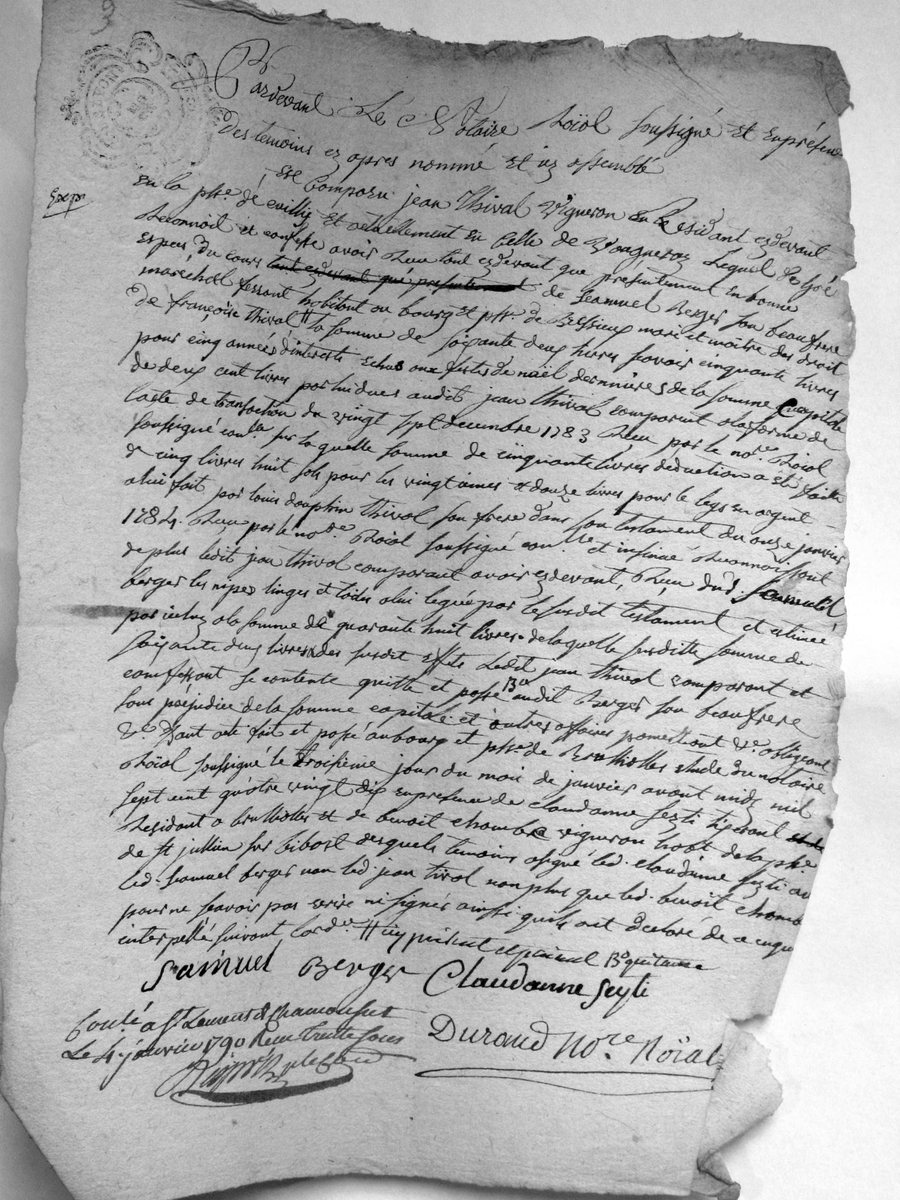 Pardevant Le Notaire Roïal soussigné Et En présen
des temoins cy apres nommé Et
Est Comparu jean Thival Vigneron En Residant cydevant
Exp.
En la psse. de Et actuellement En Celle de Lequel de gré
Reconnoit et confesse avoir Reçu tant cydevant que presentement En bonne
Espece du cours de Seamuel Berger son beaufrere
maréchal ferrant habitant au bourg et psse. de Bessieux mari et maitre des droit
de françoise Thival # la somme de soixante deux livres savoir cinquante livres
pour cinq années d'interets Echus aux fêtes de naël dernieres de la somme Capital
de deux cent livres par lui dues audit jean Thival comparant a la forme de
l'acte de transaction du vingt sept decembre 1783 Reçu par le nore. Roïal
soussigné sur la quelle somme de cinquante livres deduction a été faitte
de cinq livres huit sols pour les vingtiemes et douze livres pour le legs en argent
a lui fait par louis dauphin Thival son frere dans son testament du onze janvier
1784. Reçu par le nore. Roïal soussigné et insinué Reconnoissant
de plus ledit jean Thival comparant avoir cydevant Reçu dud. Seamuel
berger les nipes linges et a lui legué par le susdit testament et estimés
par iceluy a la somme de quarante huit livres. de laquelle susditte somme de
soixante deux livres des susdit Effets Ledit jean Thival comparant et
confessant se contente quitte et passe Bon audit Berger son beaufrere
sans préjudice de la somme capitale et autres affaires promettant &c obligeant
&c faut Eté fait et passé au bourg et psse. de Brullioles Etude du notaire
Roïal soussigné le troisieme jour du mois de janvier avant midy mil
sept cent quatre vingt dix En présence de claudanne seyti
Residant a brullioles et de benoit chamba vigneron habt. de la psse.
de st jullien sur bibost desquels temoins a signé led. claudanne seyti av
led. Samuel berger non led. jean tival non plus que led. benoit chamba
pour ne scavoir pas ecrire ni signer ainsi qu'ils ont declaré de ce enquis
interpellé suivant l'ordce. # icy présent Bo quitance
Samuel Berger Claudanne Seyti
Conté. a St Laurens de Chamousset
Le 4 janvier 1790 Reçu Trente sous
Durand Nore. Roïal